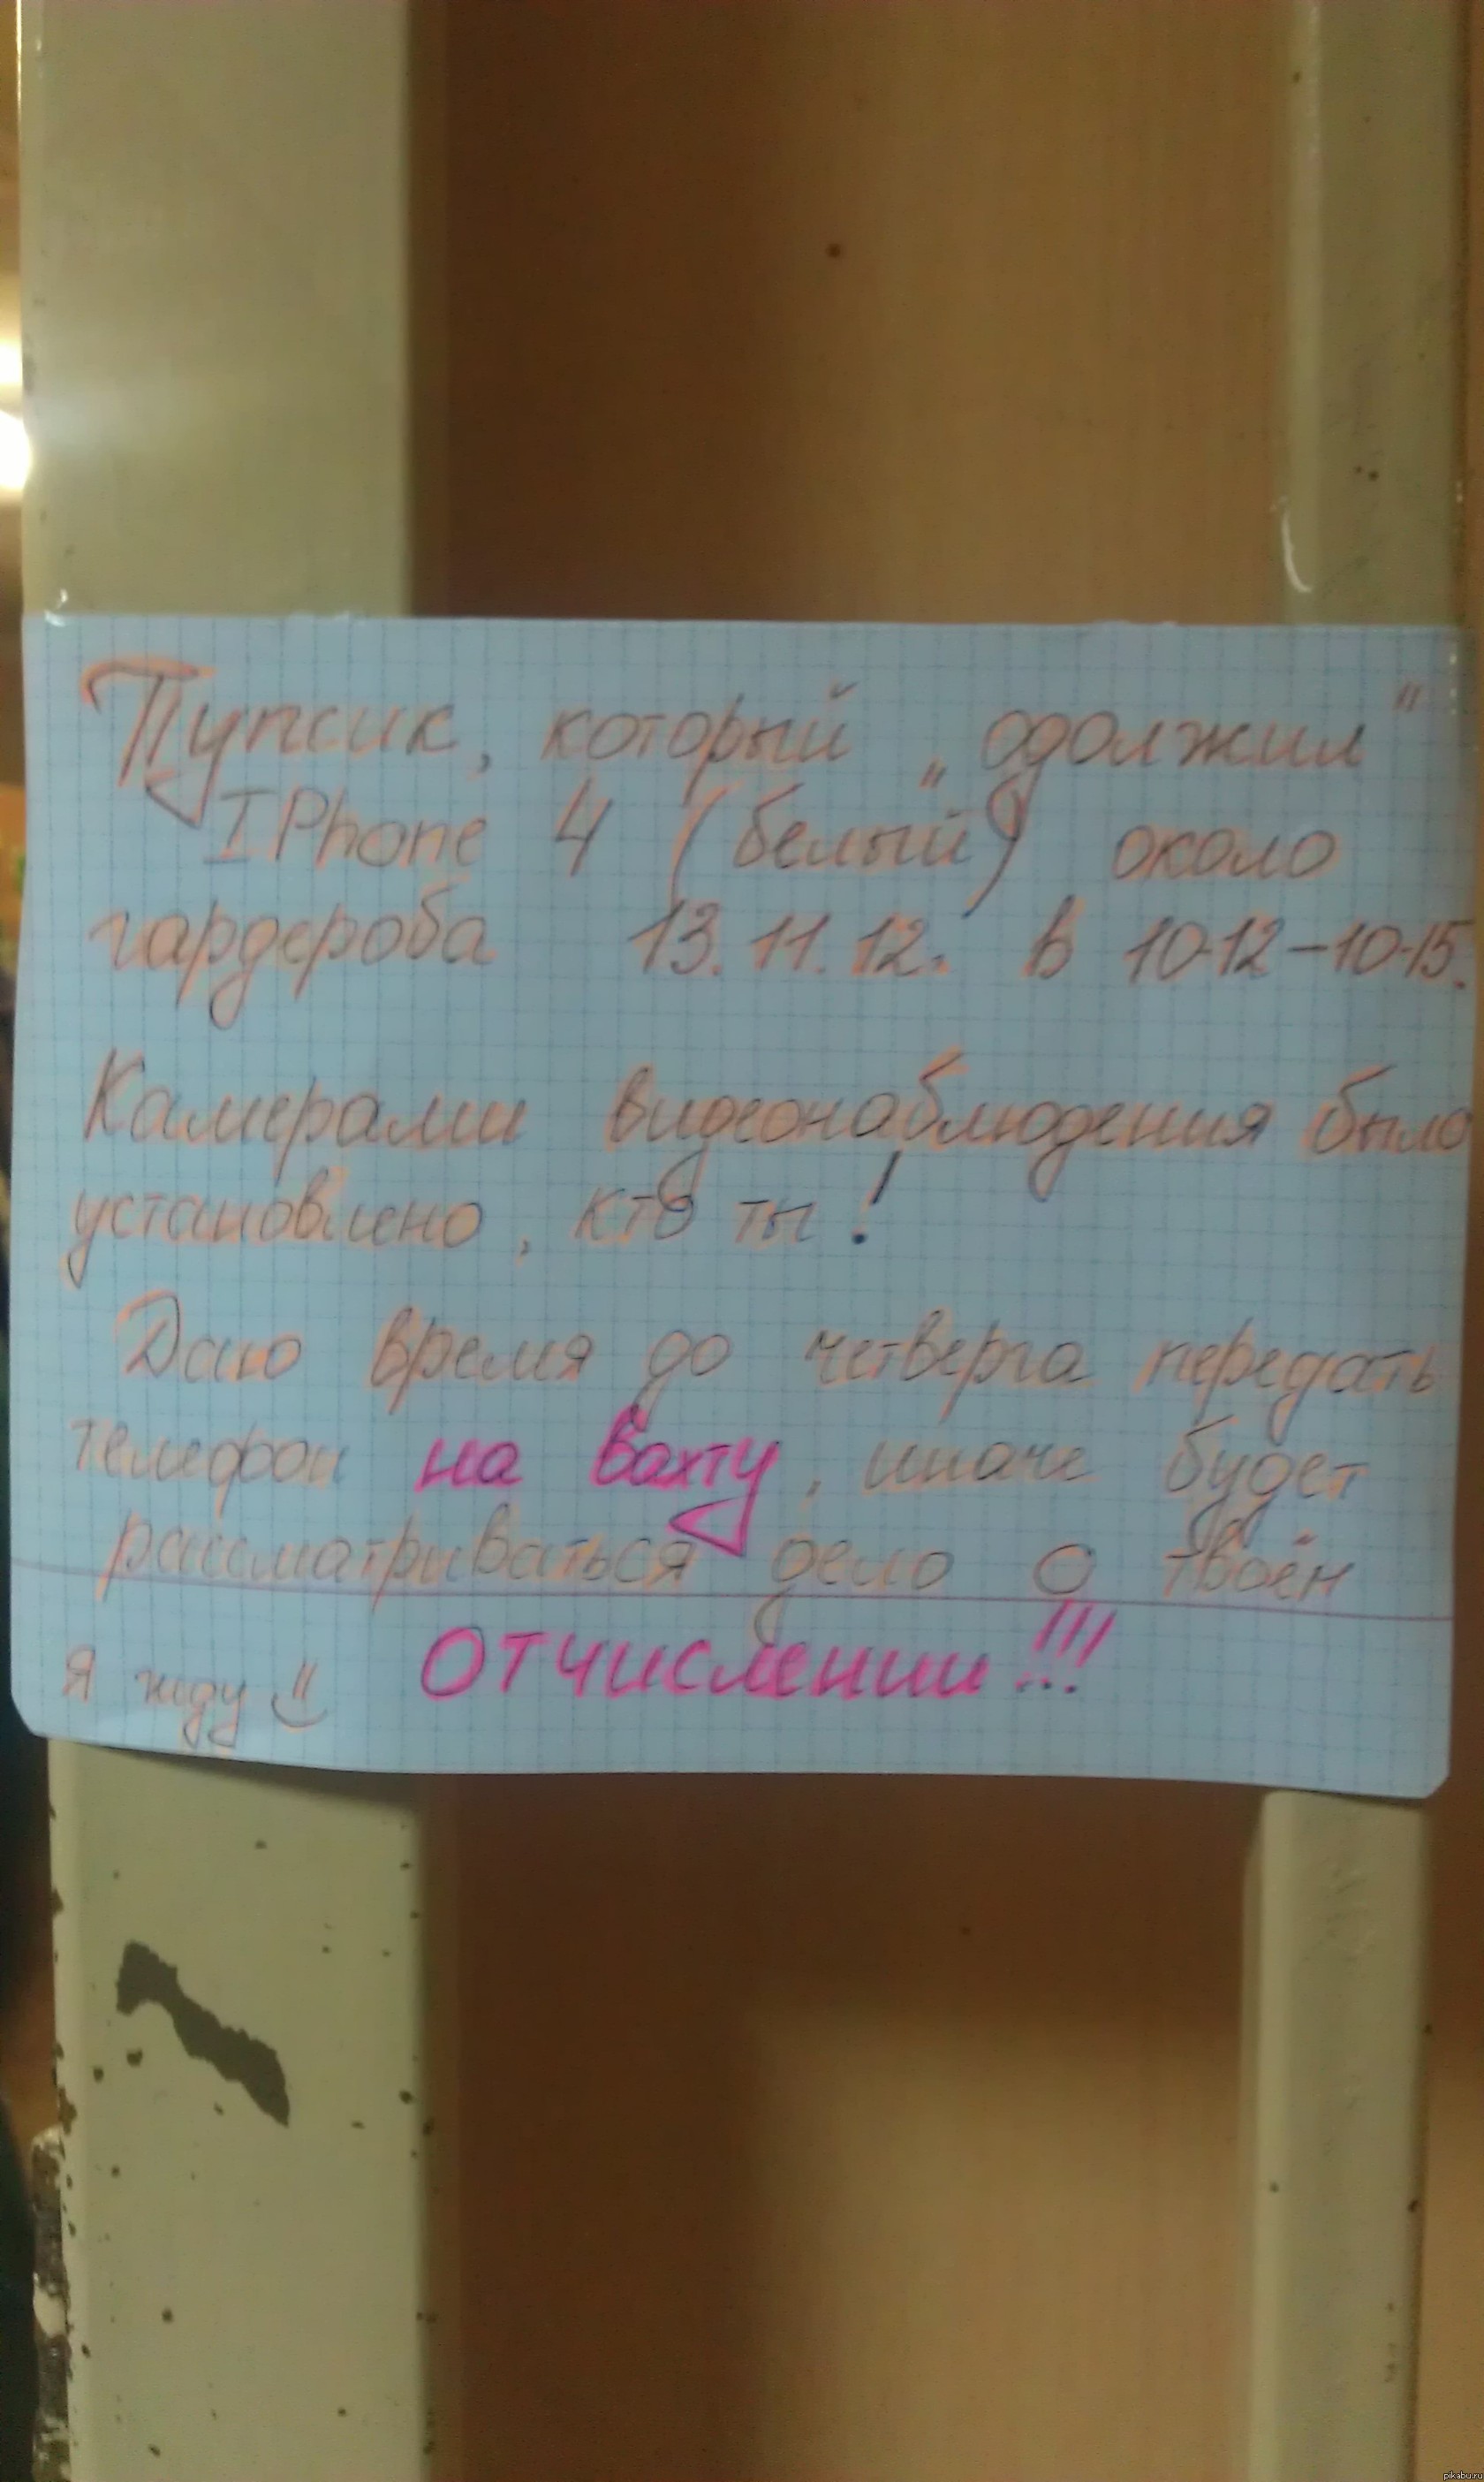 Пупсик, который „одолжил"
IPhone 4 (белый) около
гардероба 13.11.12. в 10-12-10-15.
Камерами видеонаблюдения было
установлено, кто ты!
Даю время до четверга передать
телефон на вахту, иначе будет
рассматриваться дело о твоём
ОТЧИСЛЕНИИ!!!
Я жду
pikabu.ru